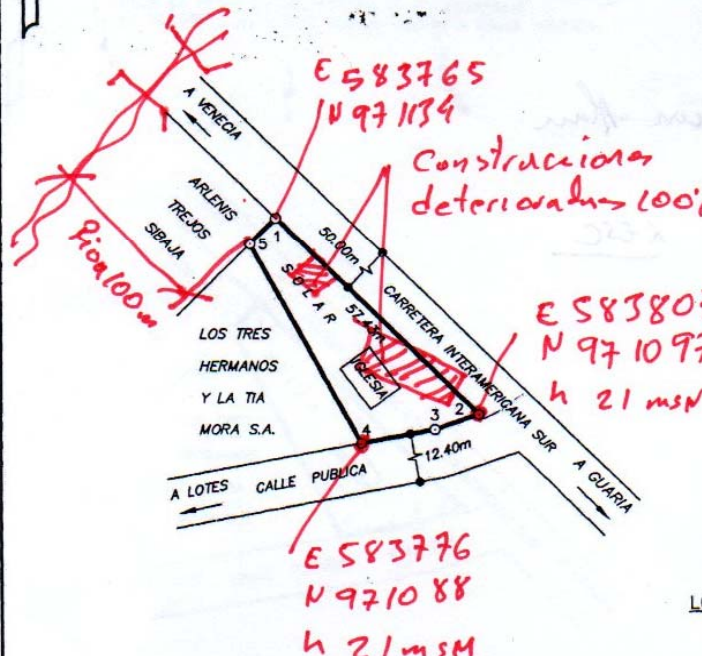 E 583765
N 971134
A VENECIA
Construcciones
deterioradas 100%
ARLENIS
TREJOS
SIBAJA
5
1
50.00m
SOLAR
57.43m
CARRETERA INTERAMERICANA SUR
100m
E 58380
N 971097
h 21 msN
LOS TRES
HERMANOS
Y LA TIA
MORA S.A.
IGLESIA
2
3
4
12.40m
A LOTES
CALLE PUBLICA
A GUARIA
E 583776
N 971088
h 21 msM